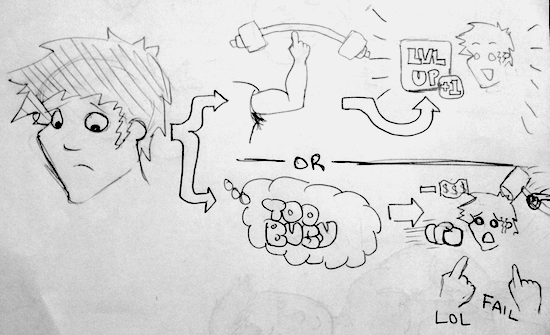 LVL
UP
+1
OR
TOO
BUSY
- $$$
LOL
FAIL